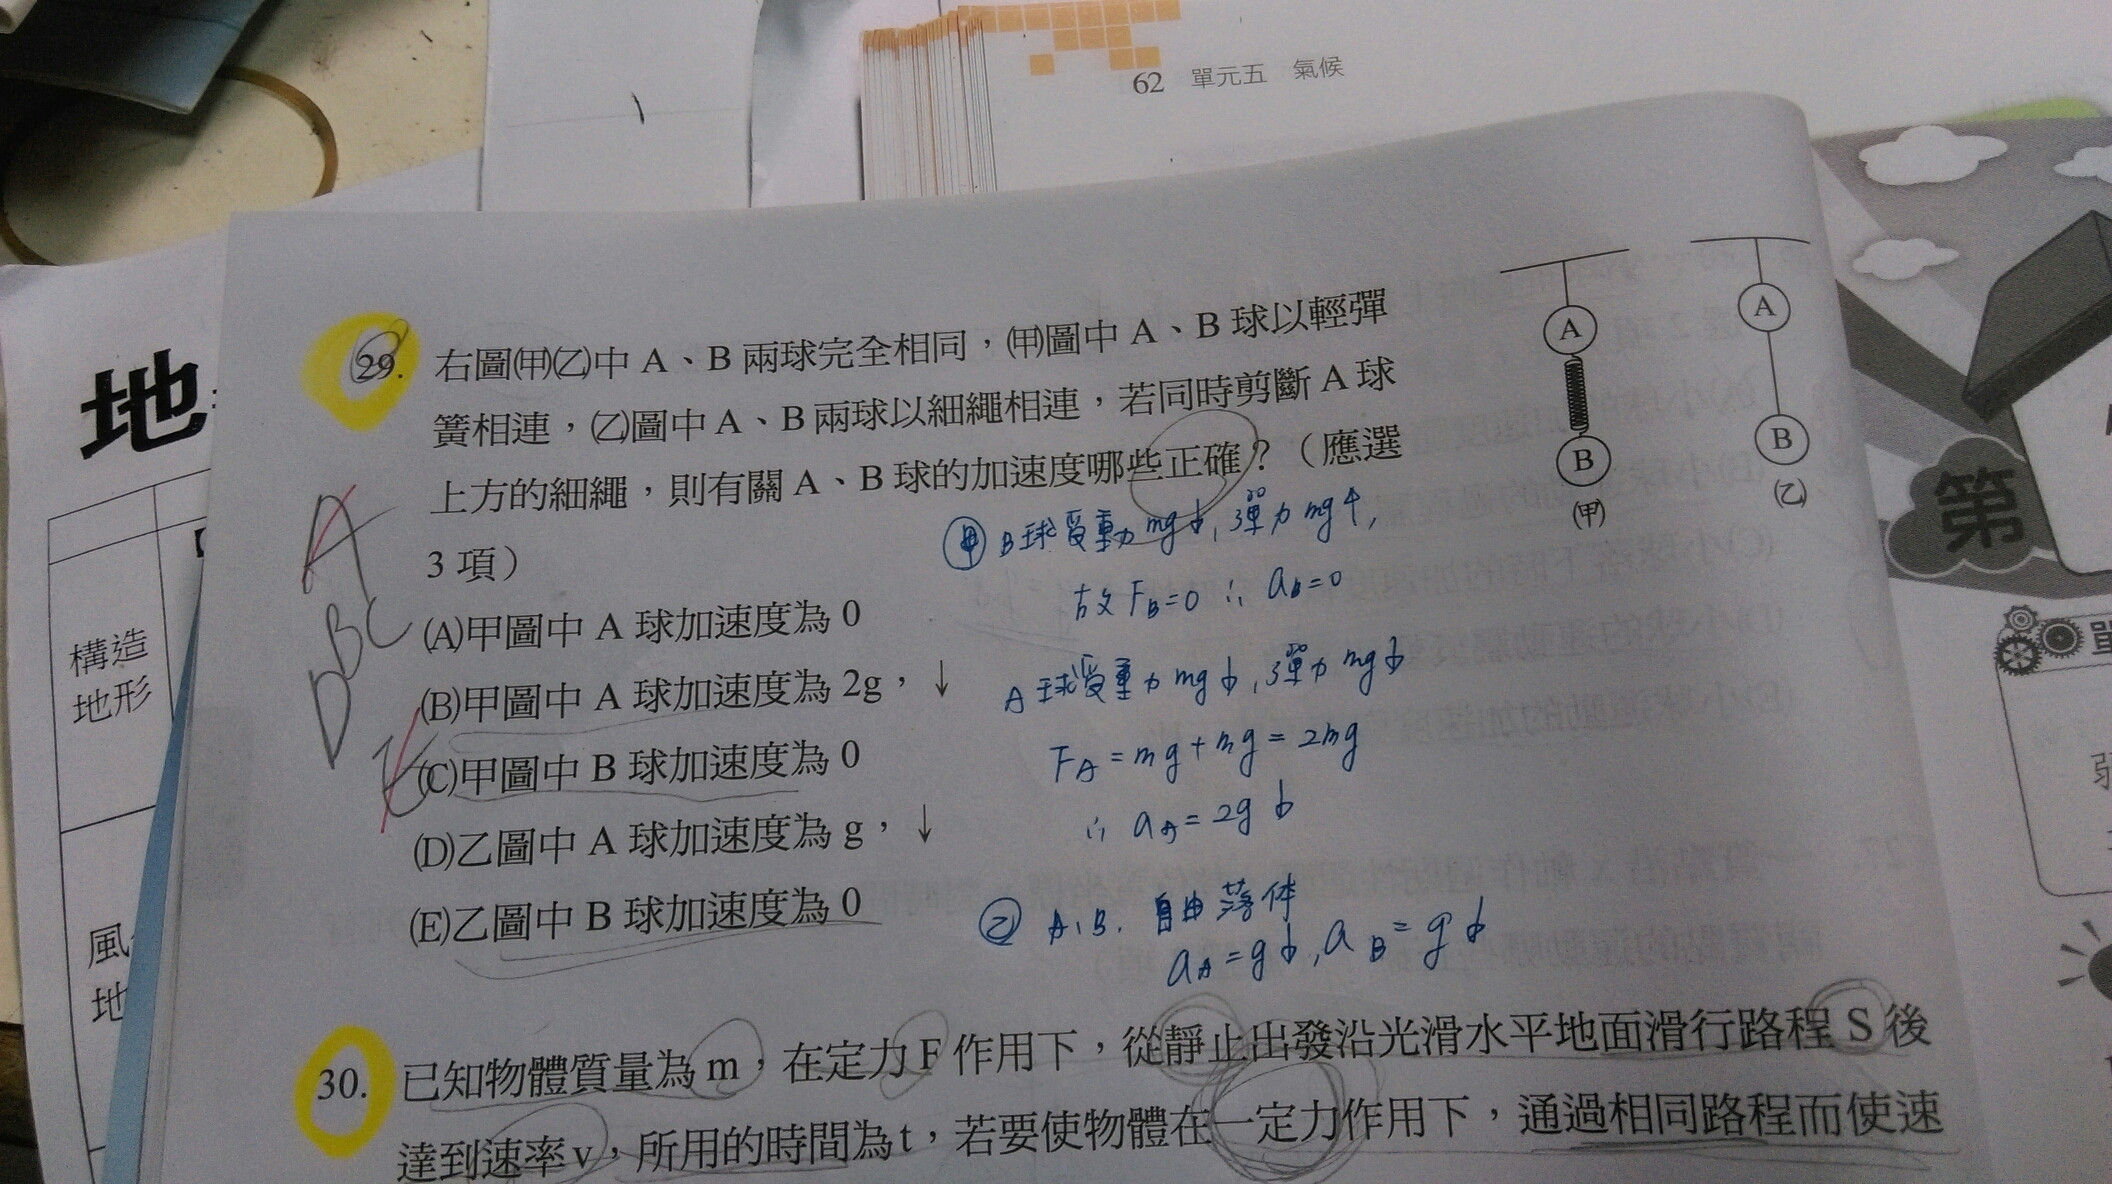 62 單元五 氣候
29. 右圖㈙㈚中 A、B 兩球完全相同，㈙圖中 A、B 球以輕彈
簧相連，㈚圖中 A、B 兩球以細繩相連，若同時剪斷 A 球
上方的細繩，則有關 A、B 球的加速度哪些正確？（應選
3 項）
(A)甲圖中 A 球加速度為 0
(B)甲圖中 A 球加速度為 2g，↓
(C)甲圖中 B 球加速度為 0
(D)乙圖中 A 球加速度為 g，↓
(E)乙圖中 B 球加速度為 0
A
B
(甲)
A
B
(乙)
A
BC
D
E
甲 B球受重力mg↓，彈力mg↑，
故 FB=0 ∴ aB=0
A 球受重力mg↓，彈力mg↓
FA = mg + mg = 2mg
∴ aA = 2g↓
乙 A、B、自由落体
aA = g↓，aB = g↓
30. 已知物體質量為 m，在定力 F 作用下，從靜止出發沿光滑水平地面滑行路程 S 後
達到速率 v，所用的時間為 t，若要使物體在一定力作用下，通過相同路程而使速
地
構造
地形
風
地
第
單